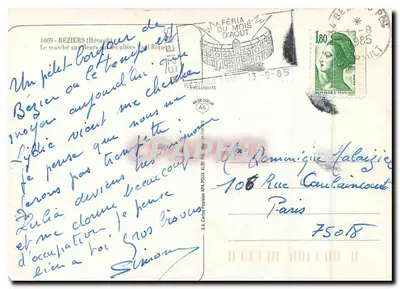 1009 - BEZIERS (Hérault)
Le marché aux fleurs, les allées Paul Riquet
Un petit bonjour de
Bézier ou le temps est
moyen aujourd'hui
Lydie vient me chercher
je pense que nous ne
serons pas
Julia deviens très mignonne
et me donne beaucoup
d'occupation, je pense
bien a toi Gros bisous
Simone
FERIA
DU MOIS
D'AOUT
13-8-85
BEZIERS
1985
HERAULT
1,80
REPUBLIQUE FRANÇAISE
AS DE CŒUR
AS
Mme Dominique
106 Rue Caulaincourt
Paris
75018